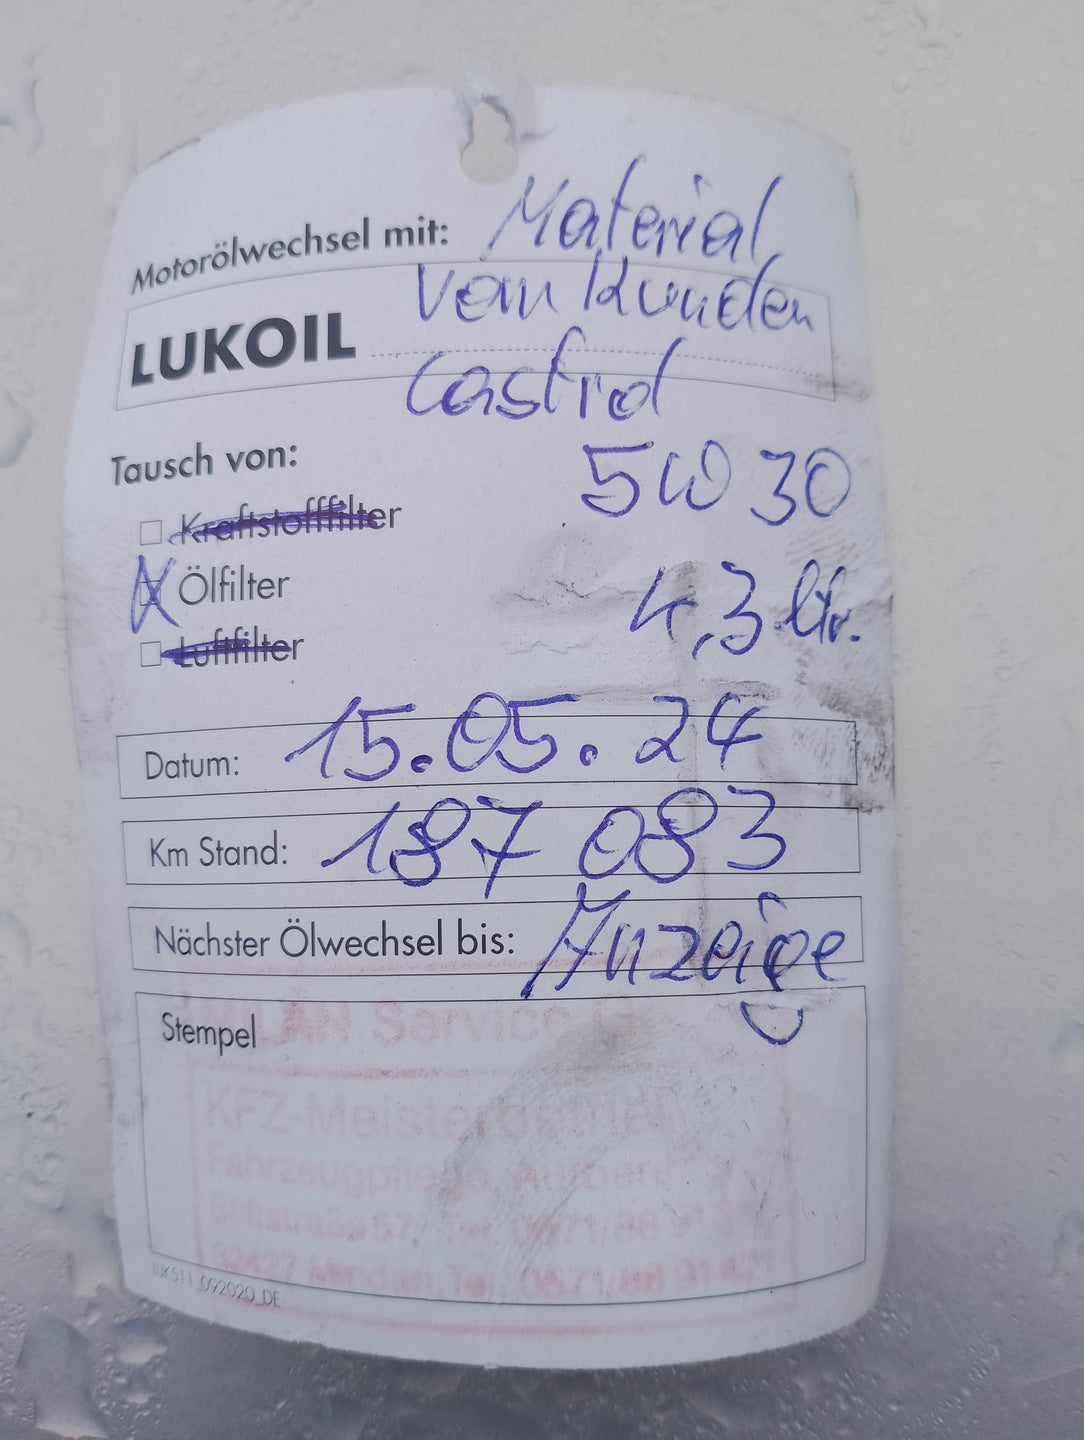 Motorölwechsel mit: Material
vom Kunden
LUKOIL
Castrol
Tausch von:
5W30
Kraftstofffilter
Ölfilter
4,3 ltr.
Luftfilter
Datum: 15.05.24
Km Stand: 187 083
Nächster Ölwechsel bis: Anzeige
Stempel
Service
KFZ-Meisterbetrieb
Fahrzeugpflege,
57, Tel. 0571/88
32427 Minden, Tel. 0571/88
LUK511_092020_DE